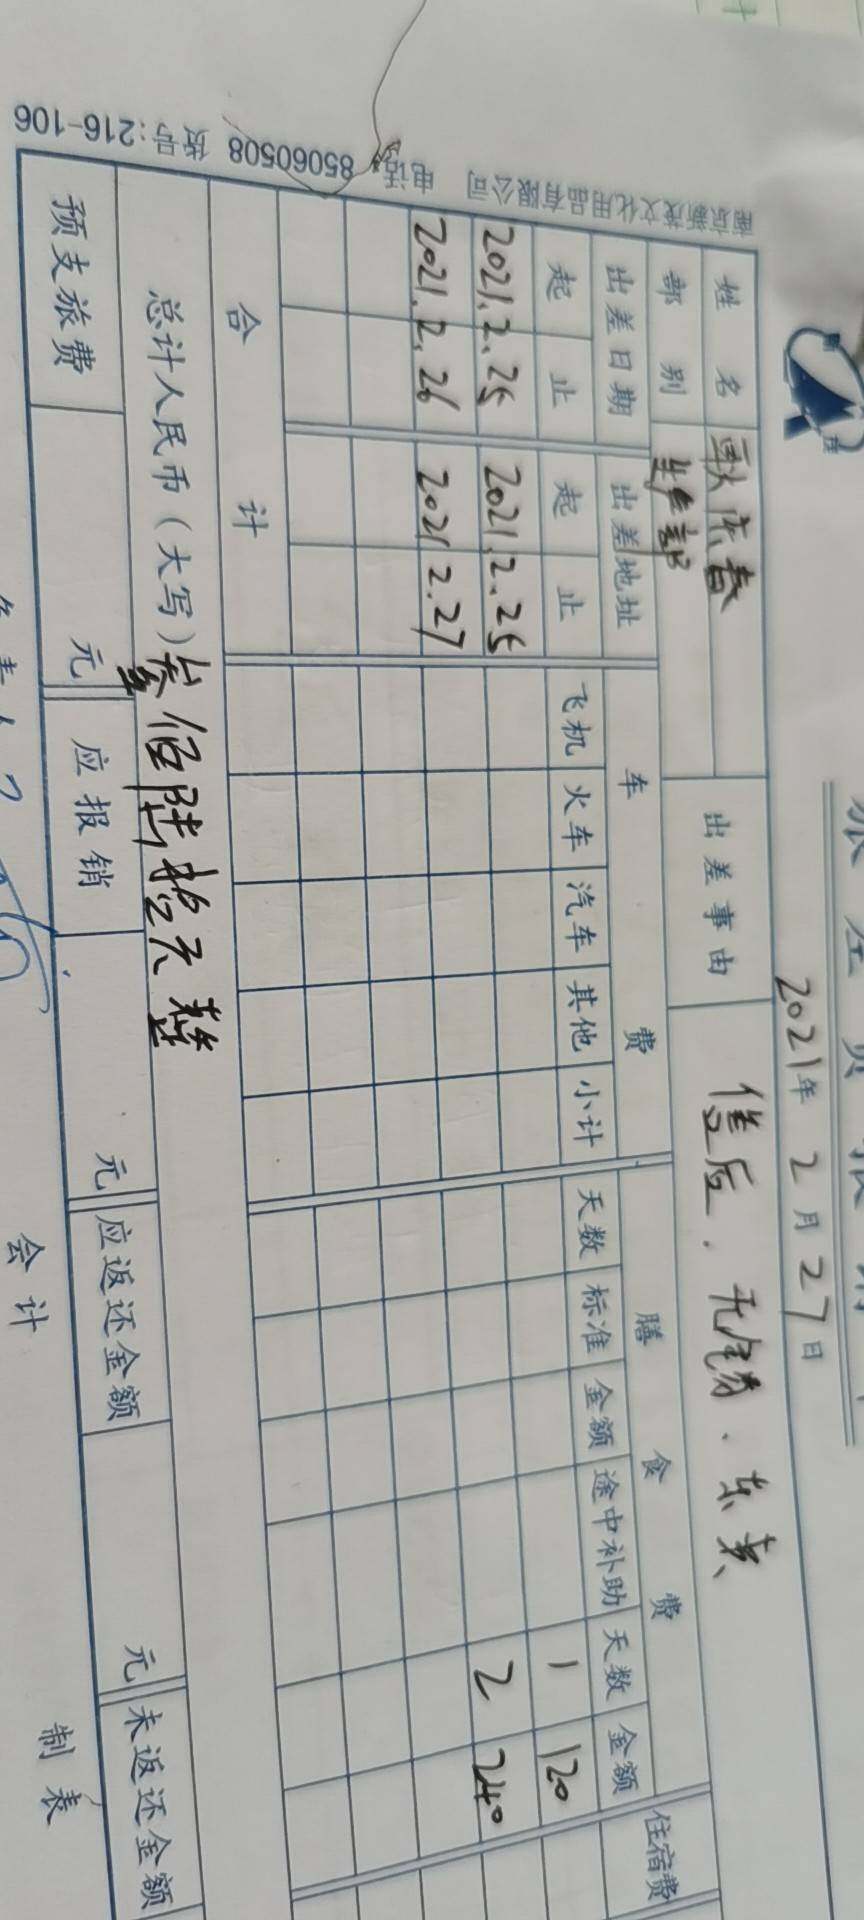 2021年2月27日
姓 名
出差事由 售后. 无锡、东莞、
部 别 生产部
出差日期 出差地址 车 费 膳 食 费 住宿费
起 止 起 止 飞机 火车 汽车 其他 小计 天数 标准 金额 途中补助 天数 金额
2021.2.25 2021.2.25 1 120
2021.2.26 2021.2.27 2 240
合 计
总计人民币（大写）叁佰陆拾元整
预支旅费 元 应报销 元 应返还金额 元 未返还金额
会计 制表
电话: 85060508 货号:216-106
南京新茂文化用品有限公司